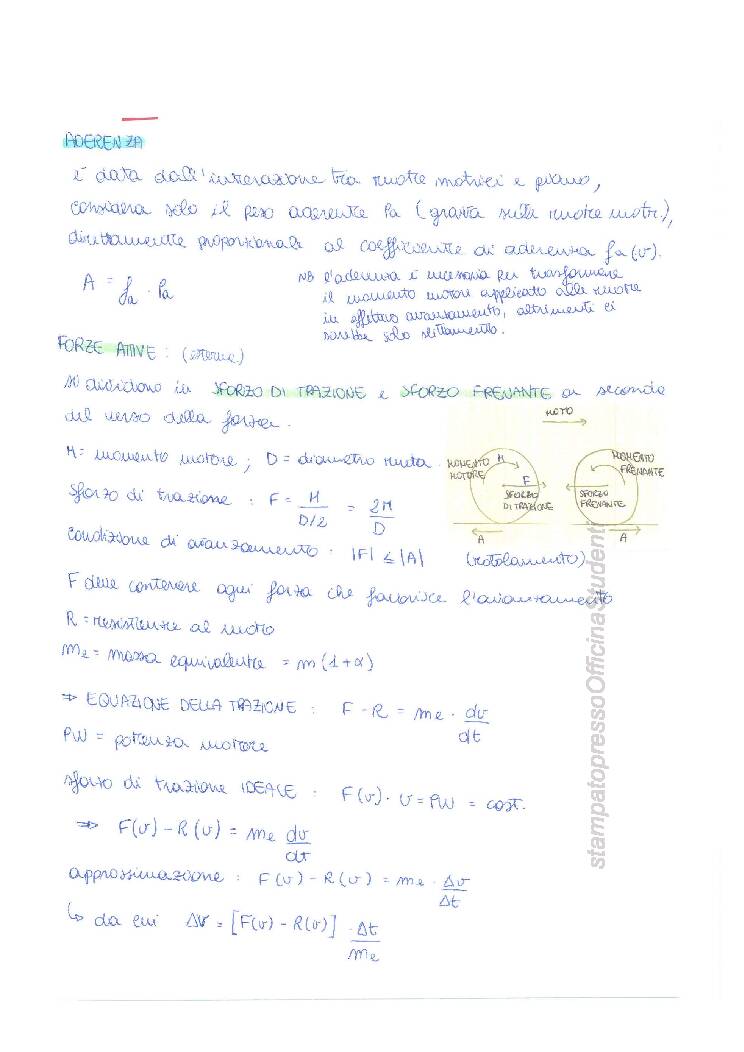 ADERENZA
è data dall'interazione tra ruote motrici e piano,
considera solo il peso aderente Pa (gravita sulle ruote motr.),
direttamente proporzionale al coefficiente di aderenza fa(v).
A = fa · Pa
NB l'aderenza è necessaria per trasformare
il momento motore applicato alle ruote
in effettivo avanzamento, altrimenti ci
sarebbe solo slittamento.
FORZE ATTIVE : (esterne)
Si dividono in SFORZO DI TRAZIONE e SFORZO FRENANTE a seconda
del verso della forza.
MOTO
M = momento motore ; D = diametro ruota.
MOMENTO MOTORE
M
F
SFORZO DI TRAZIONE
A
MOMENTO FRENANTE
SFORZO FRENANTE
A
sforzo di trazione : F = M / D/2 = 2M / D
condizione di avanzamento : |F| ≤ |A| (rotolamento)
F deve contenere ogni forza che favorisce l'avanzamento
R = resistenze al moto
me = massa equivalente = m (1+α)
⇒ EQUAZIONE DELLA TRAZIONE : F - R = me · dv/dt
PW = potenza motore
sforzo di trazione IDEALE : F(v) · v = PW = cost.
⇒ F(v) - R(v) = me dv/dt
approssimazione : F(v) - R(v) = me · Δv/Δt
↳ da cui Δv = [F(v) - R(v)] · Δt/me
stampatopressoOfficinaStudenti